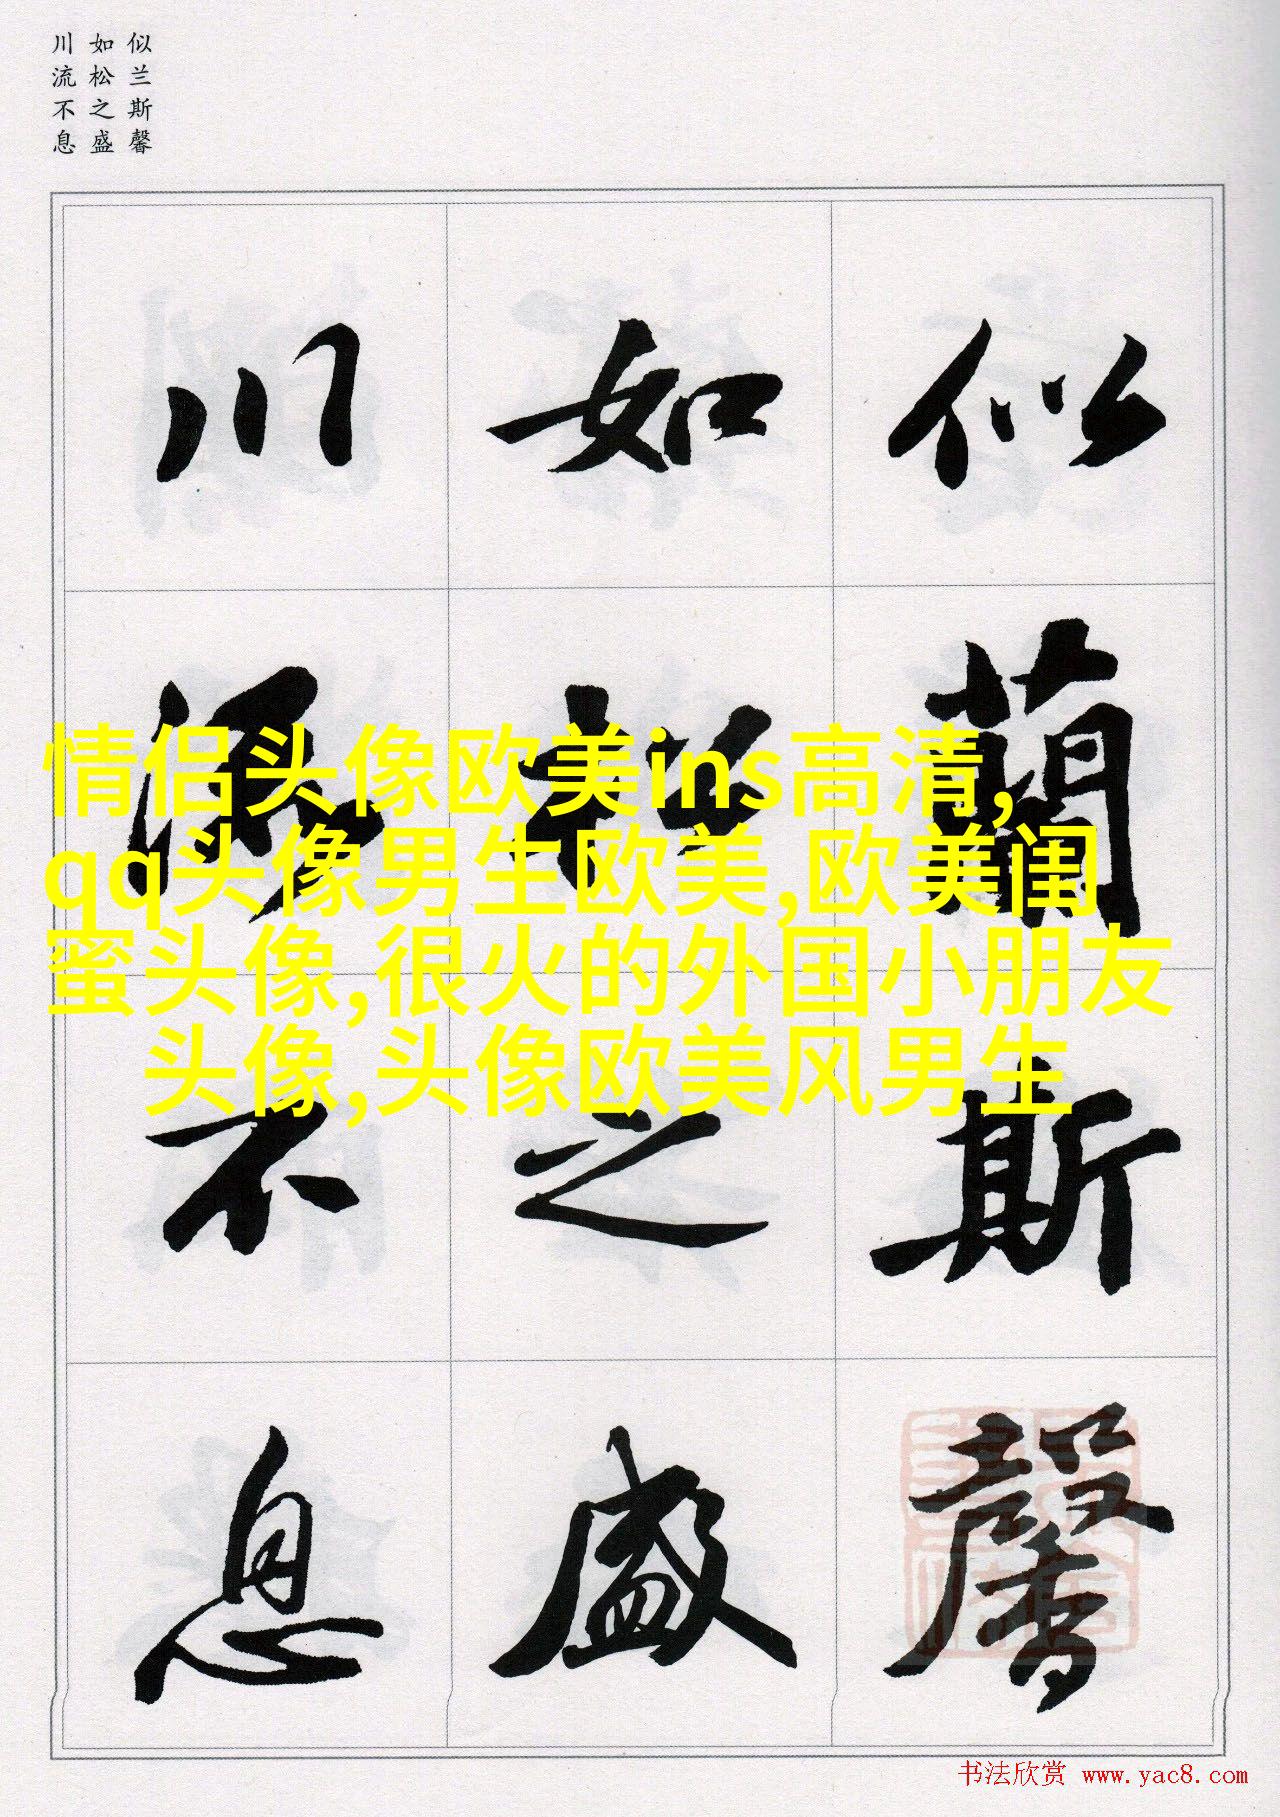 似兰斯馨
如松之盛
川流不息
似蘭斯馨
如松之盛
川流不息
情侣头像欧美ins高清,
qq头像男生欧美,欧美闺
蜜头像,很火的外国小朋友
头像,头像欧美风男生
书法欣赏 www.yac8.com